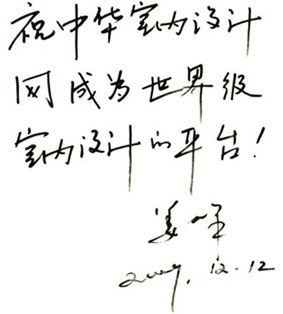 祝中华室内设计
网成为世界级
室内设计的平台!
姜峰
2009.12.12